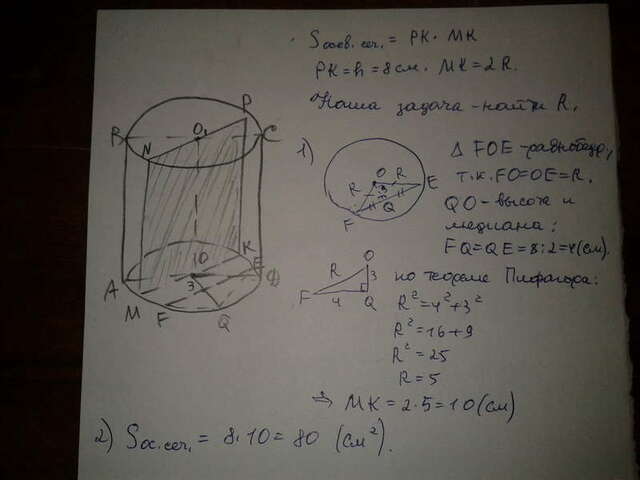 Sосев. сеч. = PK · MK
PK = h = 8 см. MK = 2R.
Наша задача - найти R.
1)
Δ FOE - равнобедр.,
т.к. FO = OE = R.
QO - высота и
медиана:
FQ = QE = 8:2 = 4 (см).
O R E R 3 H H Q F
O R 3 F 4 Q
по теореме Пифагора:
R² = 4² + 3²
R² = 16 + 9
R² = 25
R = 5
⇒ MK = 2·5 = 10 (см)
2) Sос. сеч. = 8·10 = 80 (см²).
P
B O₁ C
N
O K E
A 3 D
M F Q